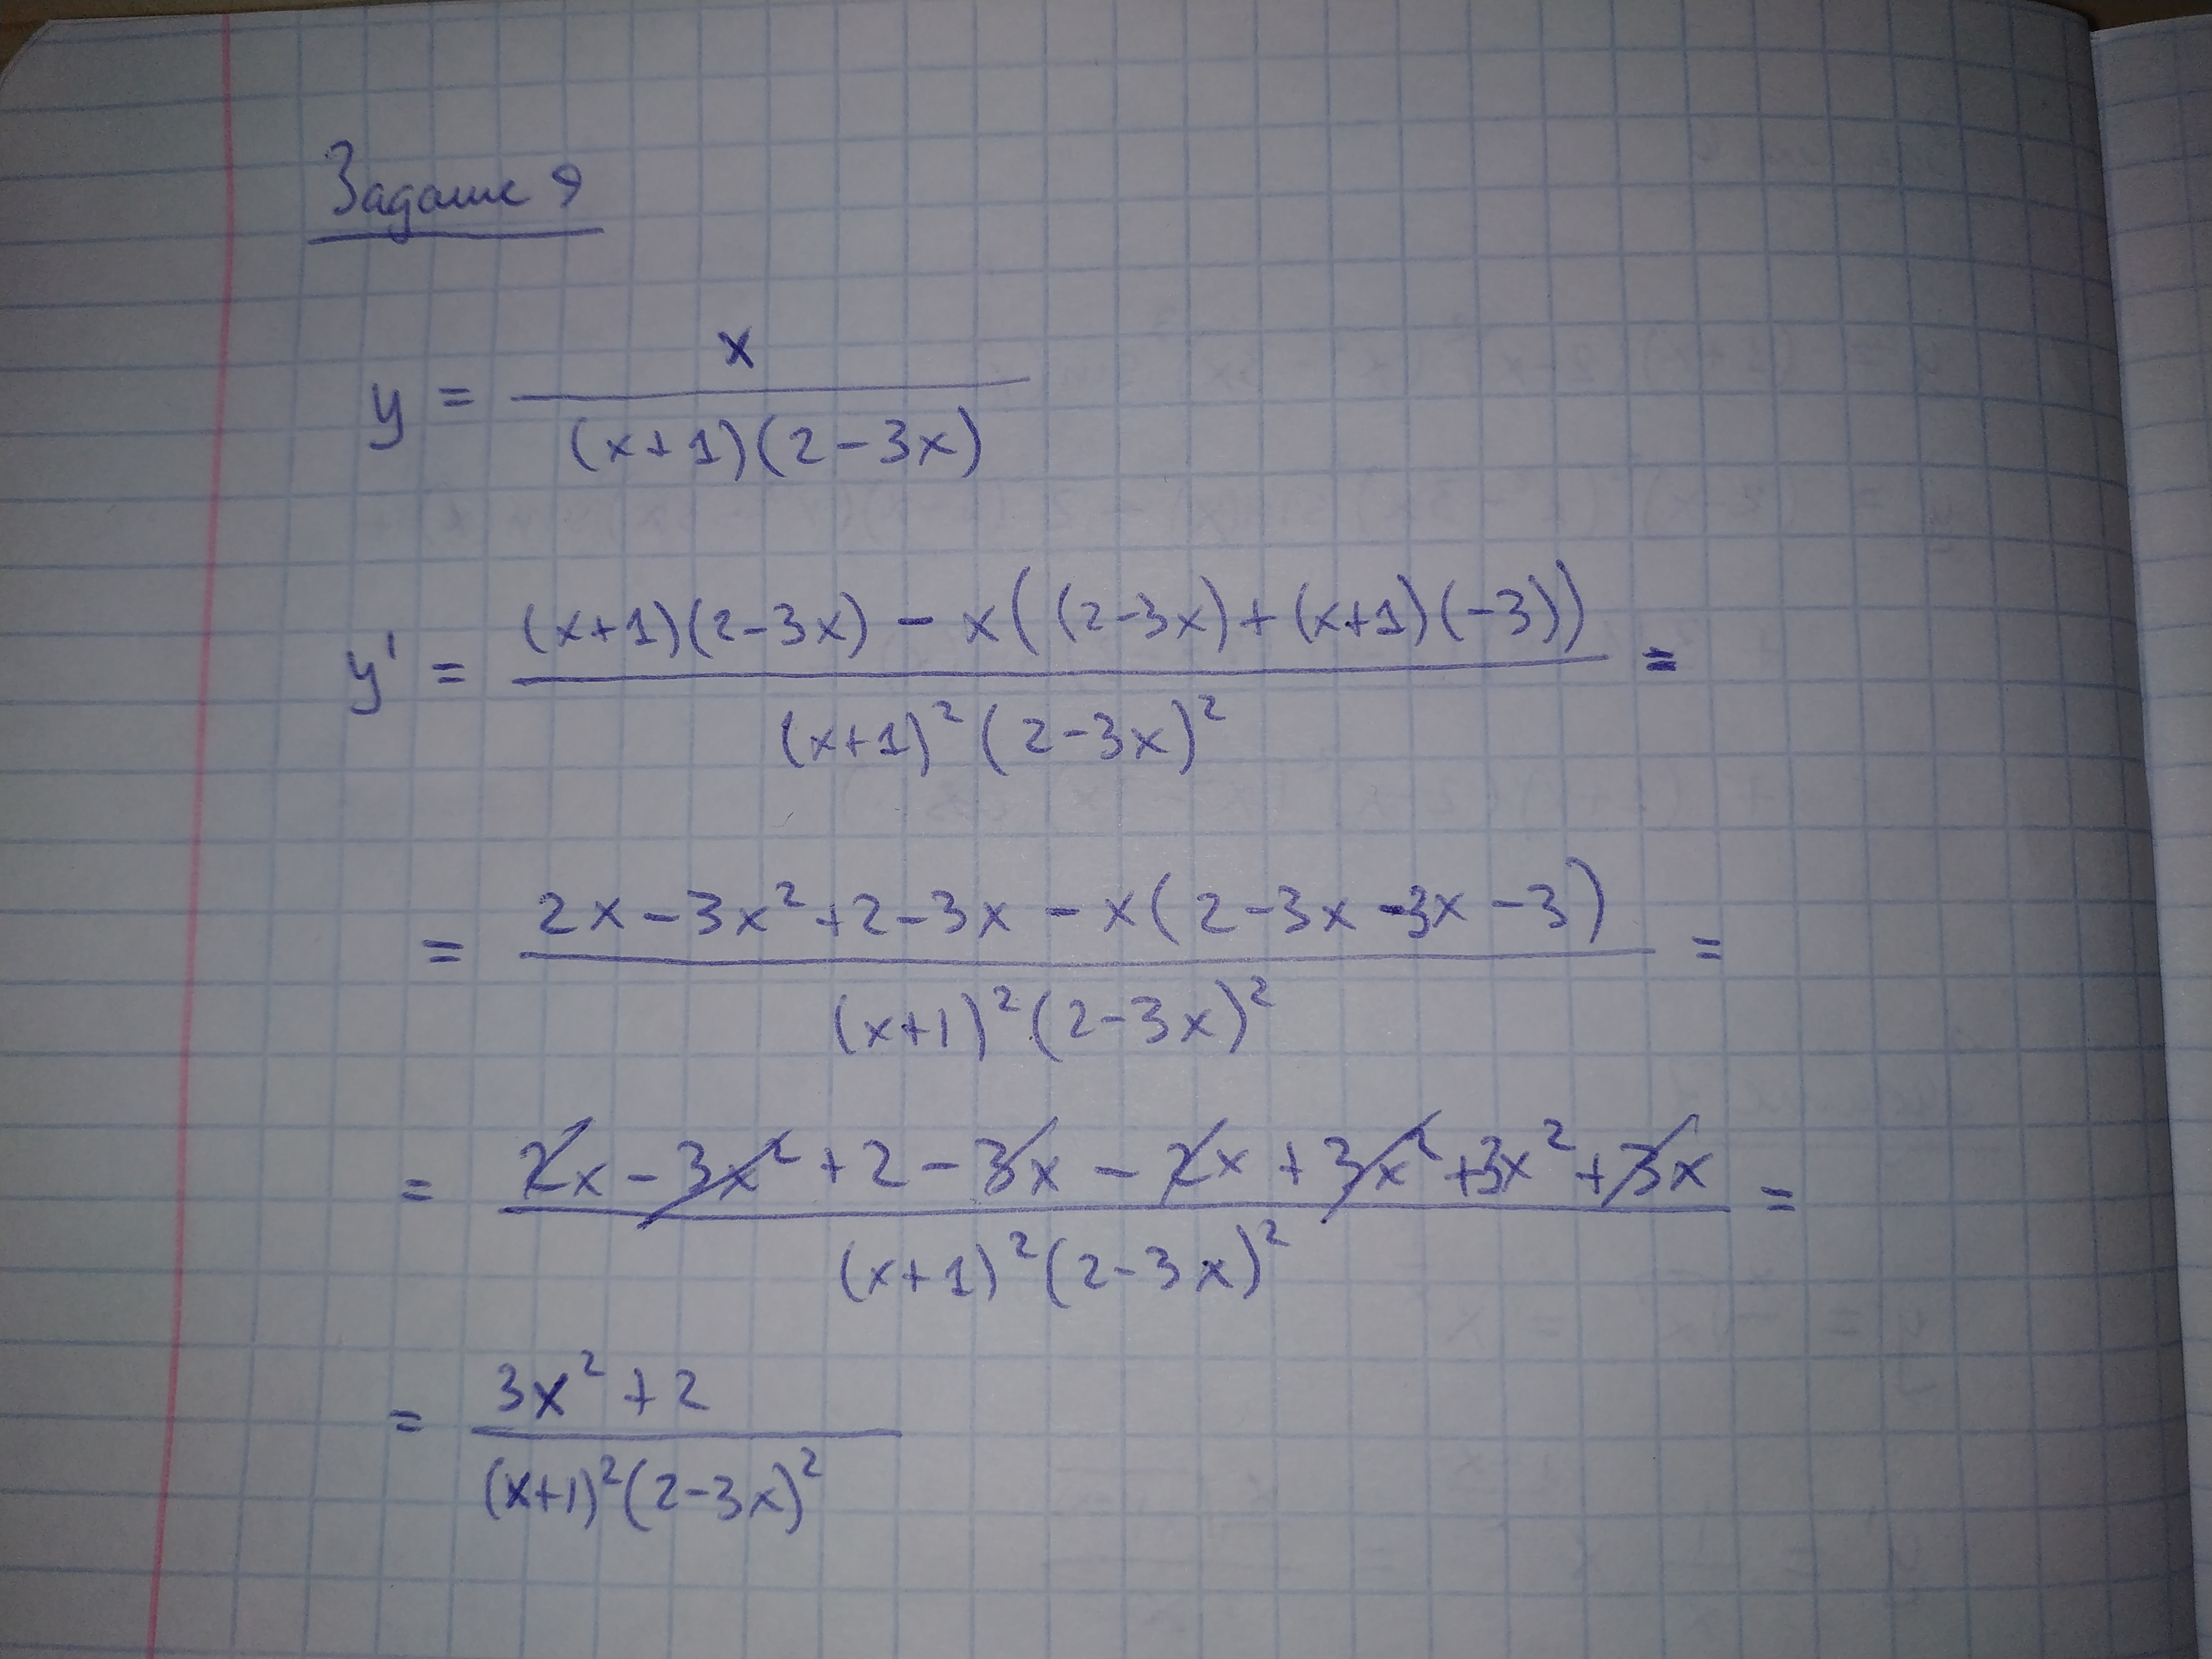 Задание 9
y = x / ((x+1)(2-3x))
y' = ((x+1)(2-3x) - x((2-3x)+(x+1)(-3))) / ((x+1)²(2-3x)²) =
= (2x-3x²+2-3x - x(2-3x-3x-3)) / ((x+1)²(2-3x)²) =
= (2x-3x²+2-3x-2x+3x²+3x²+3x) / ((x+1)²(2-3x)²) =
= (3x²+2) / ((x+1)²(2-3x)²)